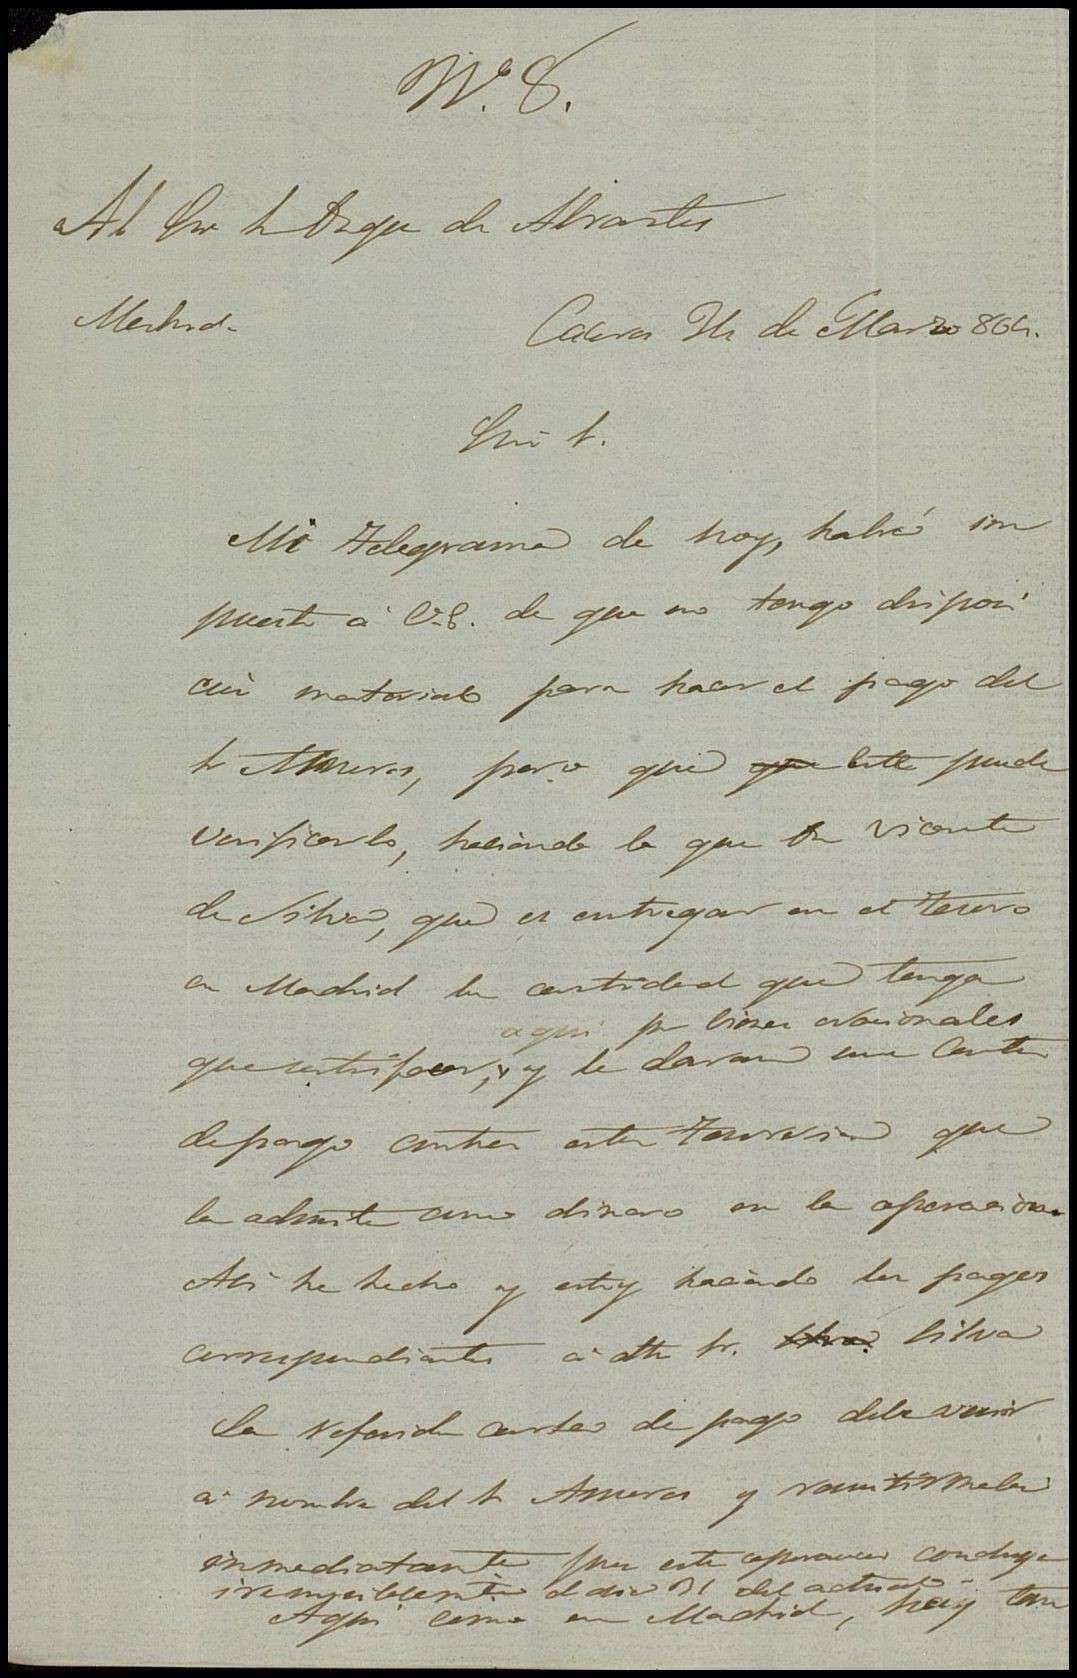 Nº 8.
Al Exmo Sr Duque de Abrantes
Madrid.
Caceres 24 de Marzo 864.
Exmo Sr.
Mi telegrama de hoy, habrá im
puesto á V.E. de que no tengo disposi
cion material para hacer el pago del
Sr Amores, pero que que este puede
verificarlo, haciendo lo que Dn Vicente
de Silva, que es entregar en el Tesoro
en Madrid la cantidad que tenga
aqui pr bienes nacionales
que satisfacer, y le daran una Carta
de pago contra esta Tesoreria que
la admite como dinero en la operacion.
Asi he hecho y estoy haciendo los pagos
correspondientes á dho Sr. Silva. Silva
La referida carta de pago debe venir
á nombre del Sr Amores y remitirmela
inmediatante pues esta operacion concluye
irremisiblemente el dia 31 del actual.
Aqui como en Madrid, hay tan